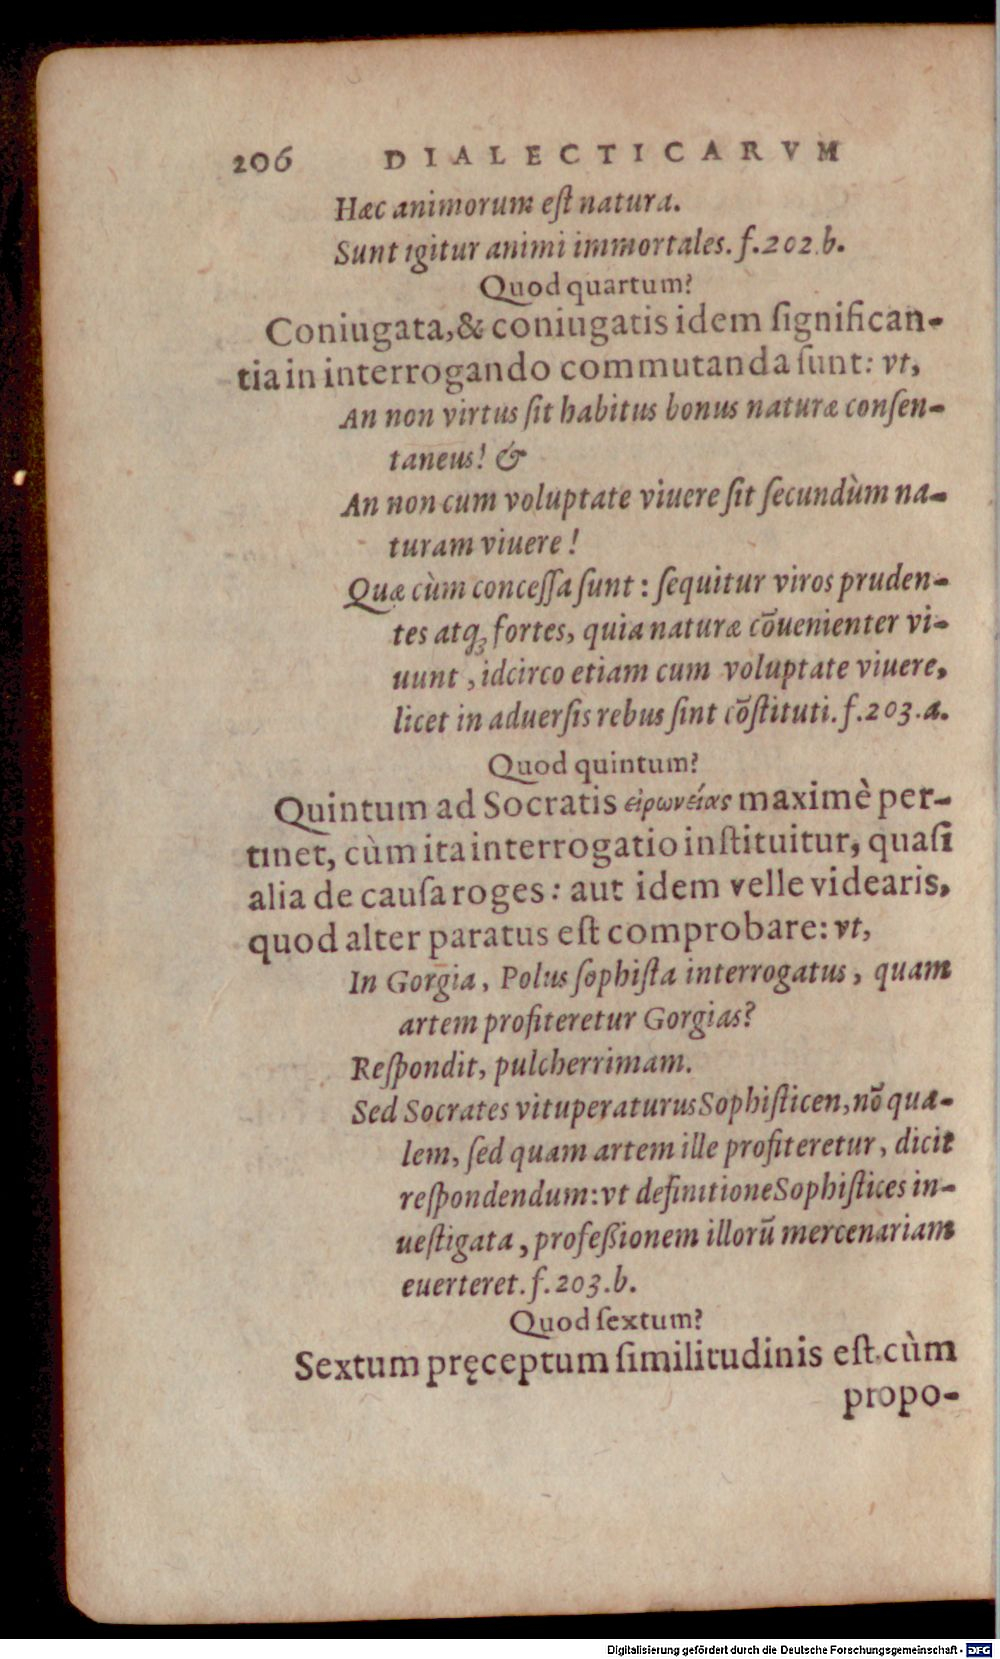 206 DIALECTICARVM
Hæc animorum eſt natura.
Sunt igitur animi immortales. f. 202. b.
Quod quartum?
Coniugata, & coniugatis idem ſignifican-
tia in interrogando commutanda ſunt: vt,
An non virtus ſit habitus bonus naturæ conſen-
taneus! &
An non cum voluptate viuere ſit ſecundùm na-
turam viuere!
Quæ cùm conceſſa ſunt: ſequitur viros pruden-
tes atq; fortes, quia naturæ cōuenienter vi-
uunt, idcirco etiam cum voluptate viuere,
licet in aduerſis rebus ſint cōſtituti. f. 203. a.
Quod quintum?
Quintum ad Socratis εἰρωνείας maximè per-
tinet, cùm ita interrogatio inſtituitur, quaſi
alia de cauſa roges: aut idem velle videaris,
quod alter paratus eſt comprobare: vt,
In Gorgia, Polus ſophiſta interrogatus, quam
artem profiteretur Gorgias?
Reſpondit, pulcherrimam.
Sed Socrates vituperaturus Sophiſticen, nō qua-
lem, ſed quam artem ille profiteretur, dicit
reſpondendum: vt definitione Sophiſtices in-
ueſtigata, profeßionem illorū mercenariam
euerteret. f. 203. b.
Quod ſextum?
Sextum pręceptum ſimilitudinis eſt cùm
propo-
Digitalisierung gefördert durch die Deutsche Forschungsgemeinschaft - DFG